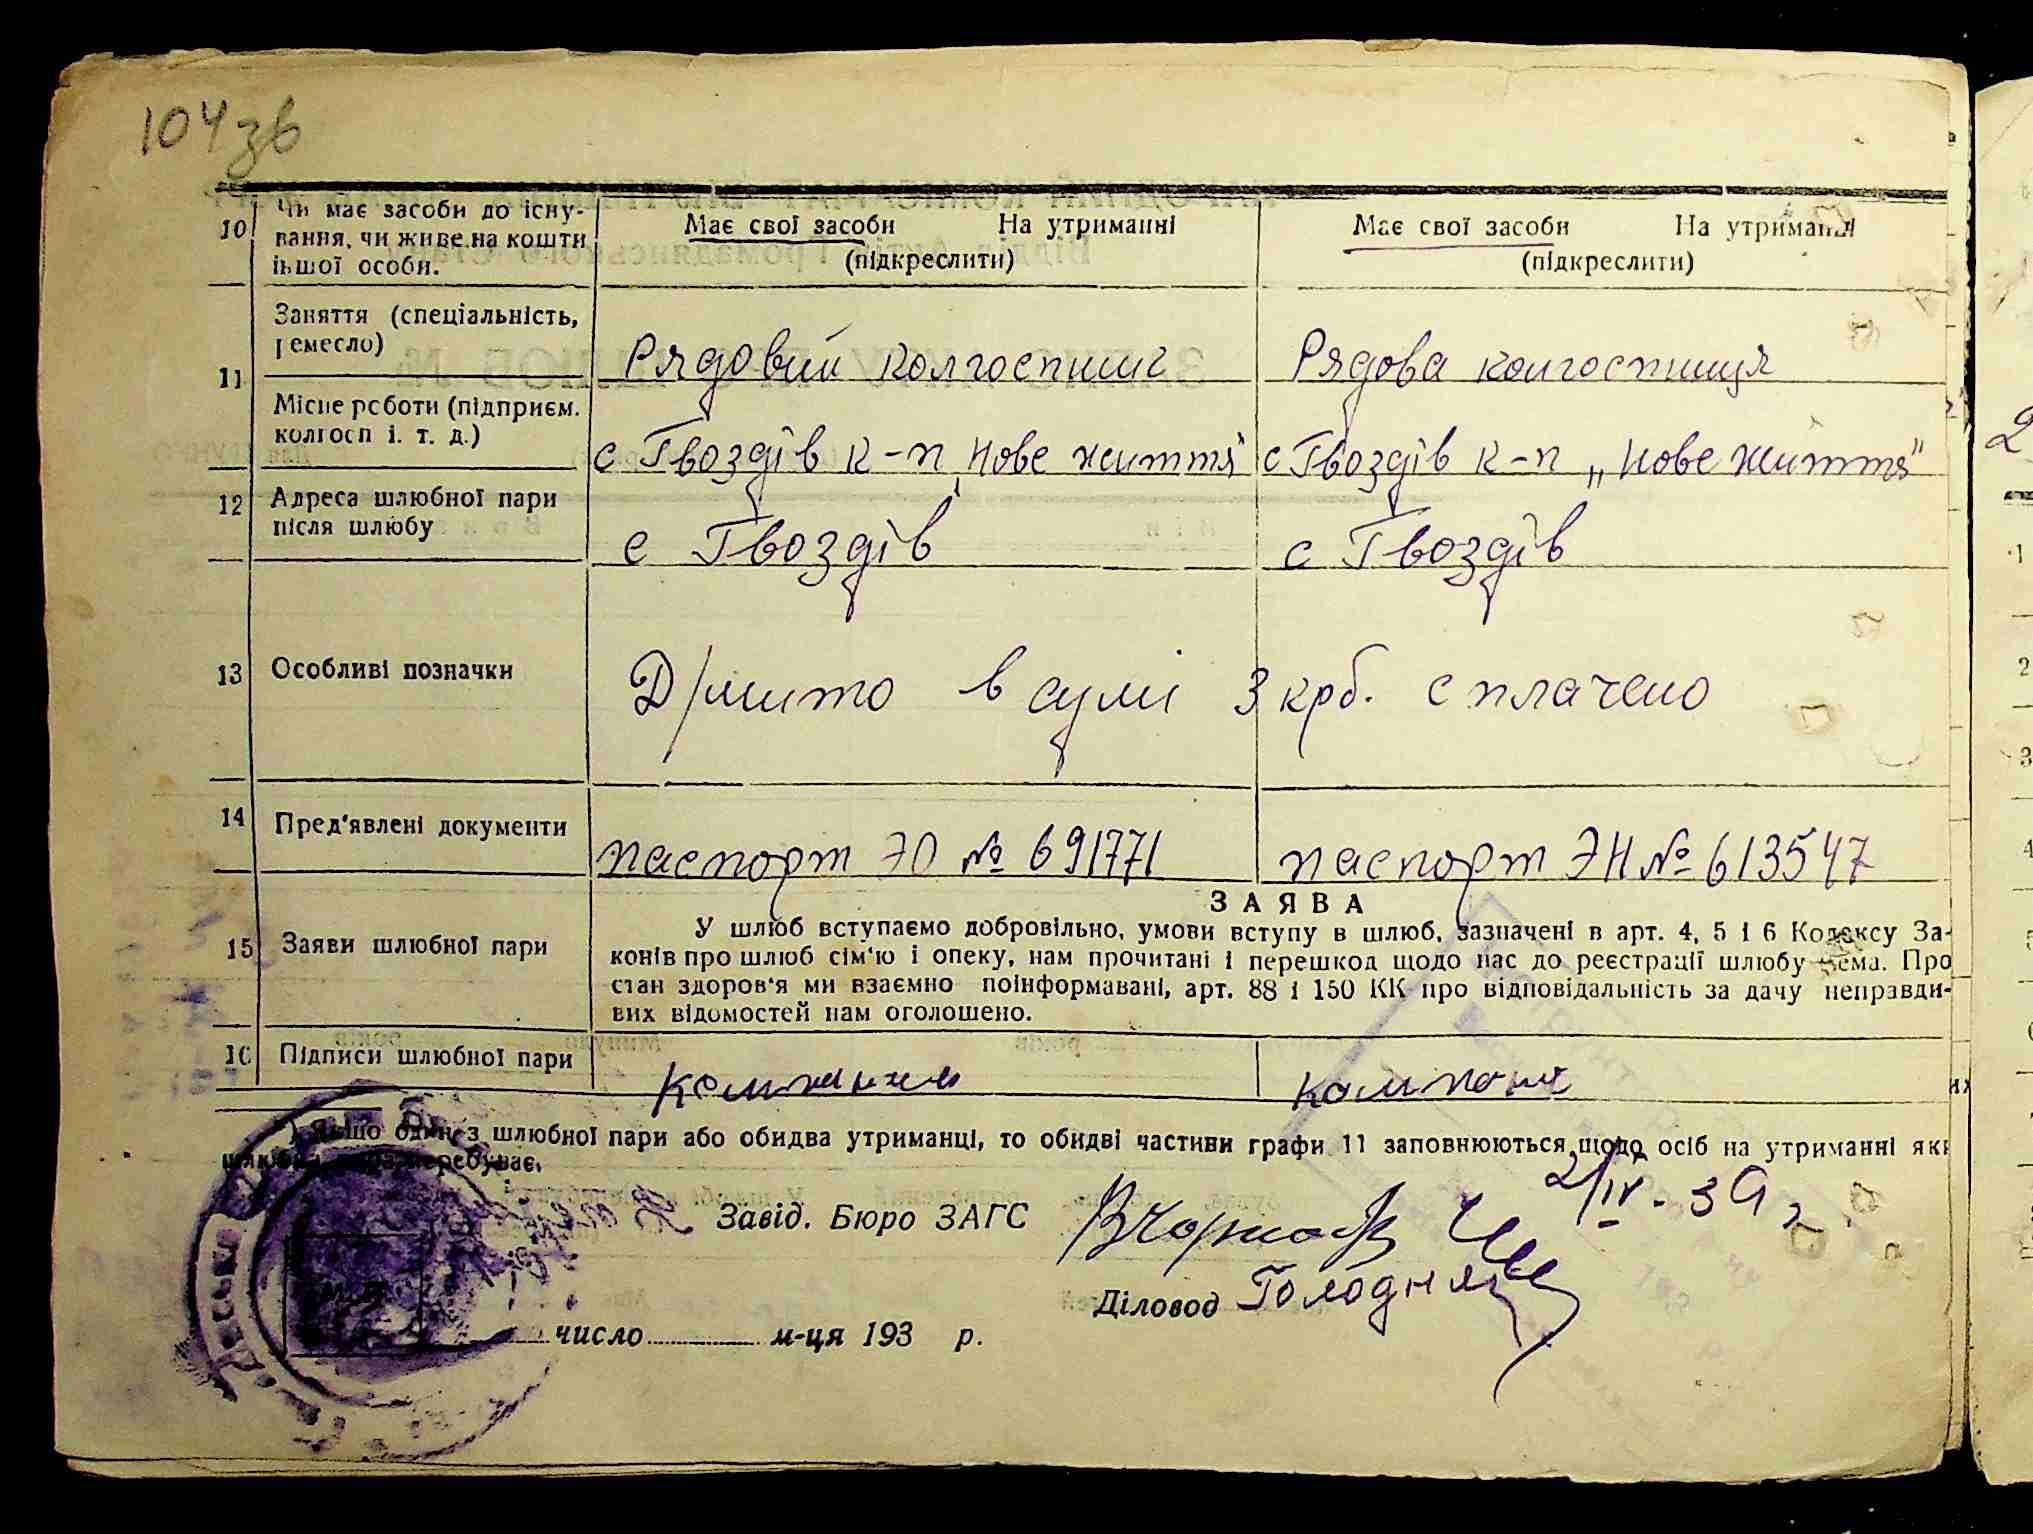 104зв
10 Чи має засоби до існу-
вання, чи живе на кошти
іншої особи.
Має свої засоби На утриманні
(підкреслити)
Має свої засоби На утриманні
(підкреслити)
11 Заняття (спеціальність,
ремесло)
Рядовий колгоспник
Рядова колгоспниця
Місце роботи (підприєм.
колгосп і. т. д.)
с Гвоздів к-п „Нове життя"
с Гвоздів к-п „Нове життя"
12 Адреса шлюбної пари
після шлюбу
с Гвоздів
с Гвоздів
13 Особливі позначки
Д/мито в сумі 3 крб. сплачено
14 Пред'явлені документи
паспорт ЭО № 691771
паспорт ЭН № 613547
15 Заяви шлюбної пари
ЗАЯВА
У шлюб вступаємо добровільно, умови вступу в шлюб, зазначені в арт. 4, 5 і 6 Кодексу За-
конів про шлюб сім'ю і опеку, нам прочитані і перешкод щодо нас до реєстрації шлюбу нема. Про
стан здоров'я ми взаємно поінформавані, арт. 88 і 150 КК про відповідальність за дачу неправди-
вих відомостей нам оголошено.
16 Підписи шлюбної пари
) Якщо один з шлюбної пари або обидва утриманці, то обидві частиви графи 11 заповнюються щодо осіб на утриманні які
перебуває.
2/IV-39
Завід. Бюро ЗАГС
Діловод
число м-ця 193 р.